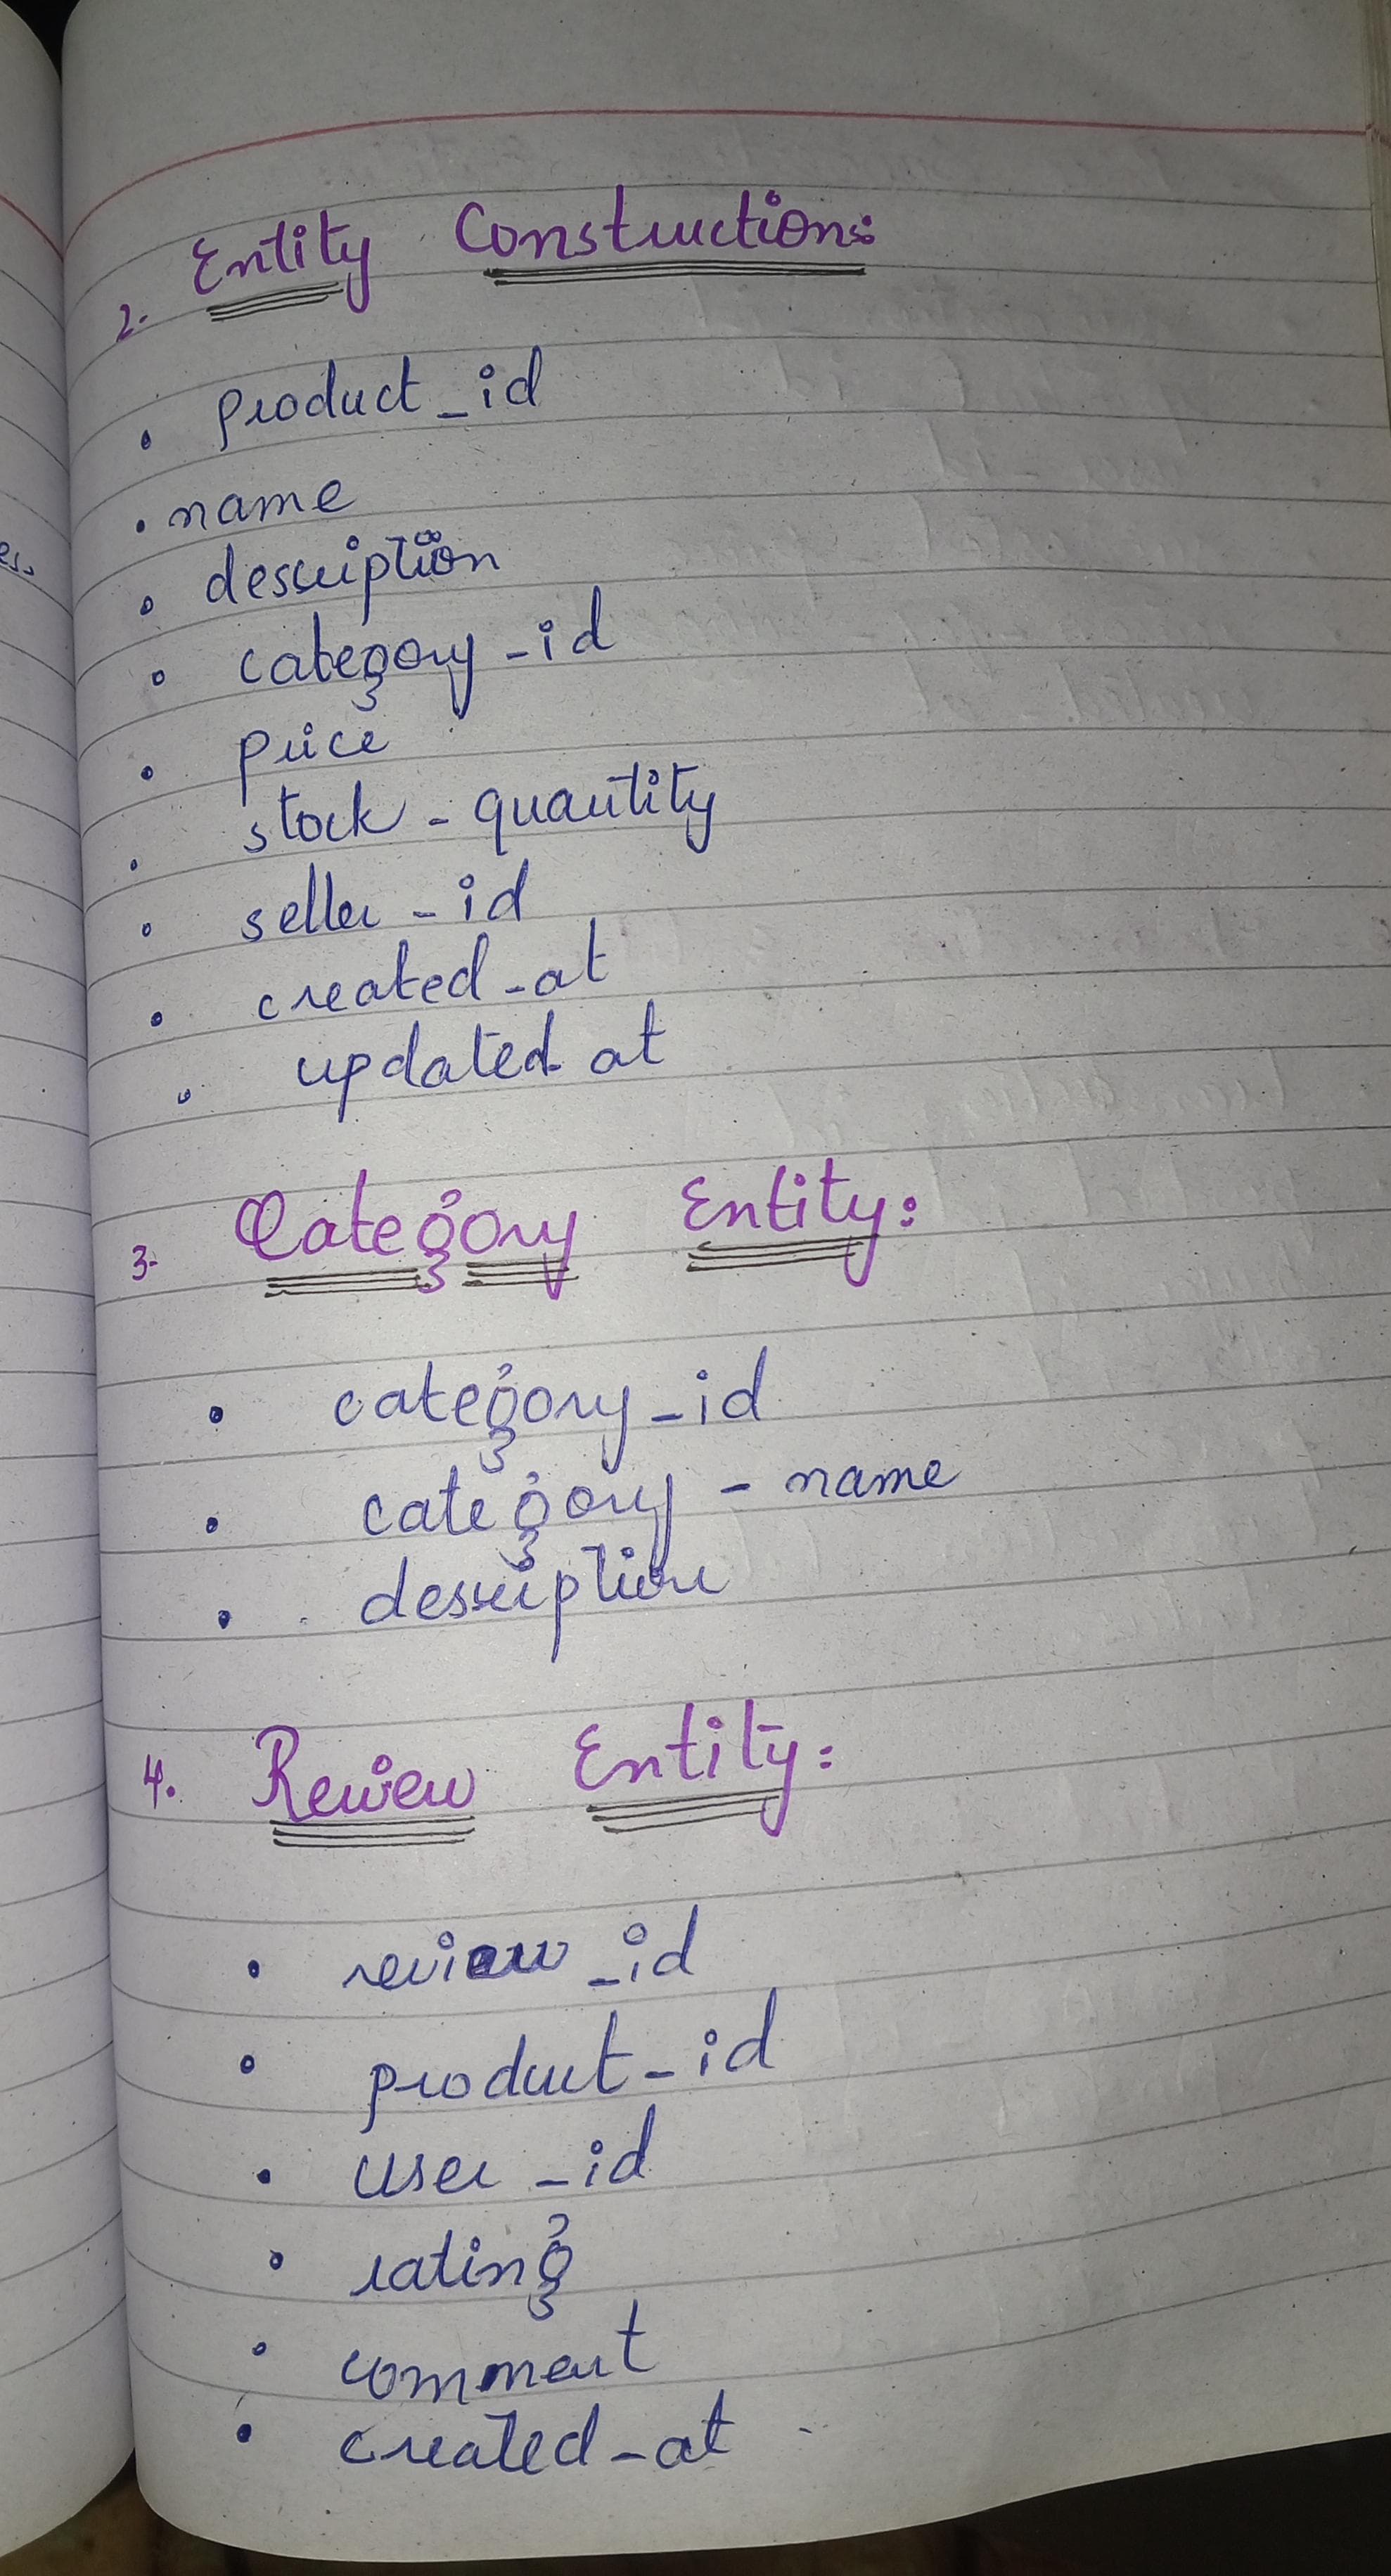 2. Entity Construction:
• product_id
• name
• description
• category_id
• price
• stock-quantity
• seller_id
• created_at
• updated at
3. Category Entity:
• category_id
• category - name
• description
4. Review Entity:
• review_id
• product_id
• user_id
• rating
• comment
• created_at